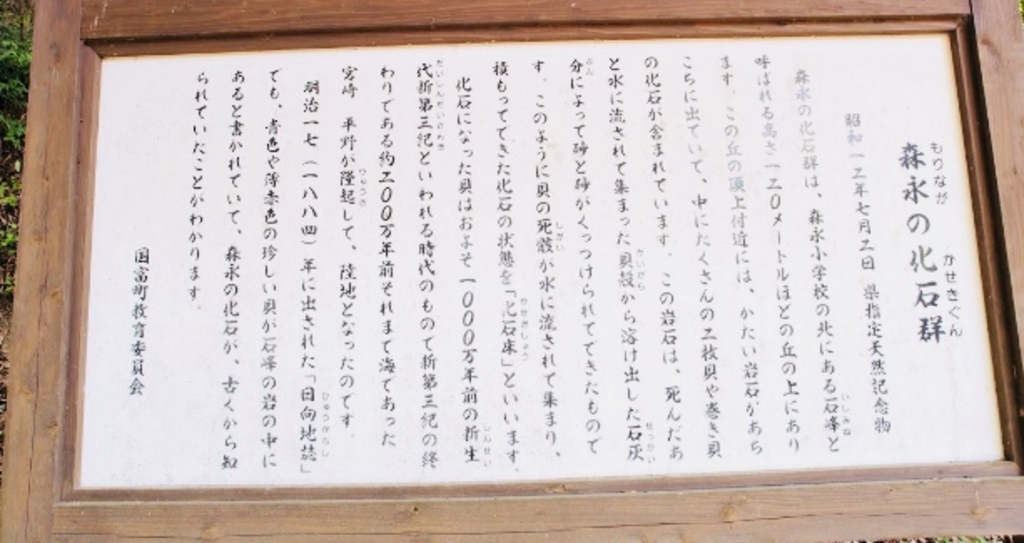 森永の化石群
昭和一二年七月二日 県指定天然記念物
森永の化石群は、森永小学校の北にある石峰と
呼ばれる高さ一二〇メートルほどの丘の上にあり
ます。この丘の頂上付近には、かたい岩石があち
こちに出ていて、中にたくさんの二枚貝や巻き貝
の化石が含まれています。この岩石は、死んだあ
と水に流されて集まった貝殻から溶け出した石灰
分によって砂と砂がくっつけられてできたもので
す。このように貝の死骸が水に流されて集まり、
積もってできた化石の状態を「化石床」といいます。
化石になった貝はおよそ一〇〇〇万年前の新生
代新第三紀といわれる時代のもので新第三紀の終
わりである約二〇〇万年前それまで海であった
宮崎 平野が隆起して、陸地となったのです。
明治一七(一八八四)年に出された「日向地誌」
でも、青色や薄赤色の珍しい貝が石峰の岩の中に
あると書かれていて、森永の化石が、古くから知
られていたことがわかります。
国富町教育委員会